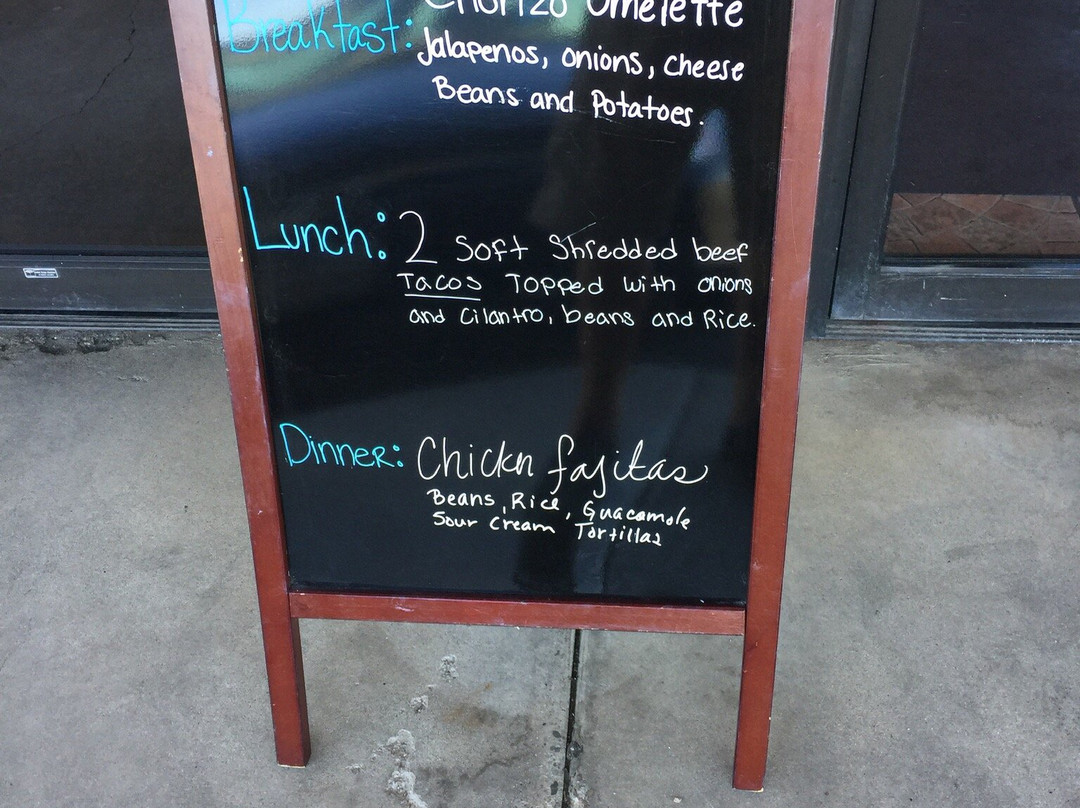 Breakfast: Chorizo Omelette
Jalapenos, onions, cheese
Beans and Potatoes.
Lunch: 2 Soft Shredded beef
Tacos Topped with onions
and Cilantro, beans and Rice.
Dinner: Chickn fajitas
Beans, Rice, Guacamole
Sour Cream Tortillas